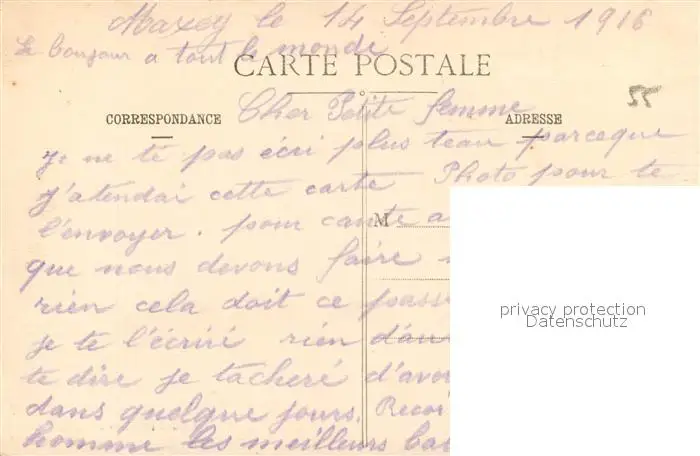 Maxey le 14 Septembre 1916
Le bonjour a tout le monde
CARTE POSTALE
55
CORRESPONDANCE
ADRESSE
Cher Petite femme
Je ne te pas écri plus teau parceque
J'atendai cette carte Photo pour te
l'envoyer. pour
M
que nous devons faire
rien cela doit ce
je te l'écriré rien
te dire je tacheré
dans quelque jours.
homme les meilleurs
privacy protection
Datenschutz